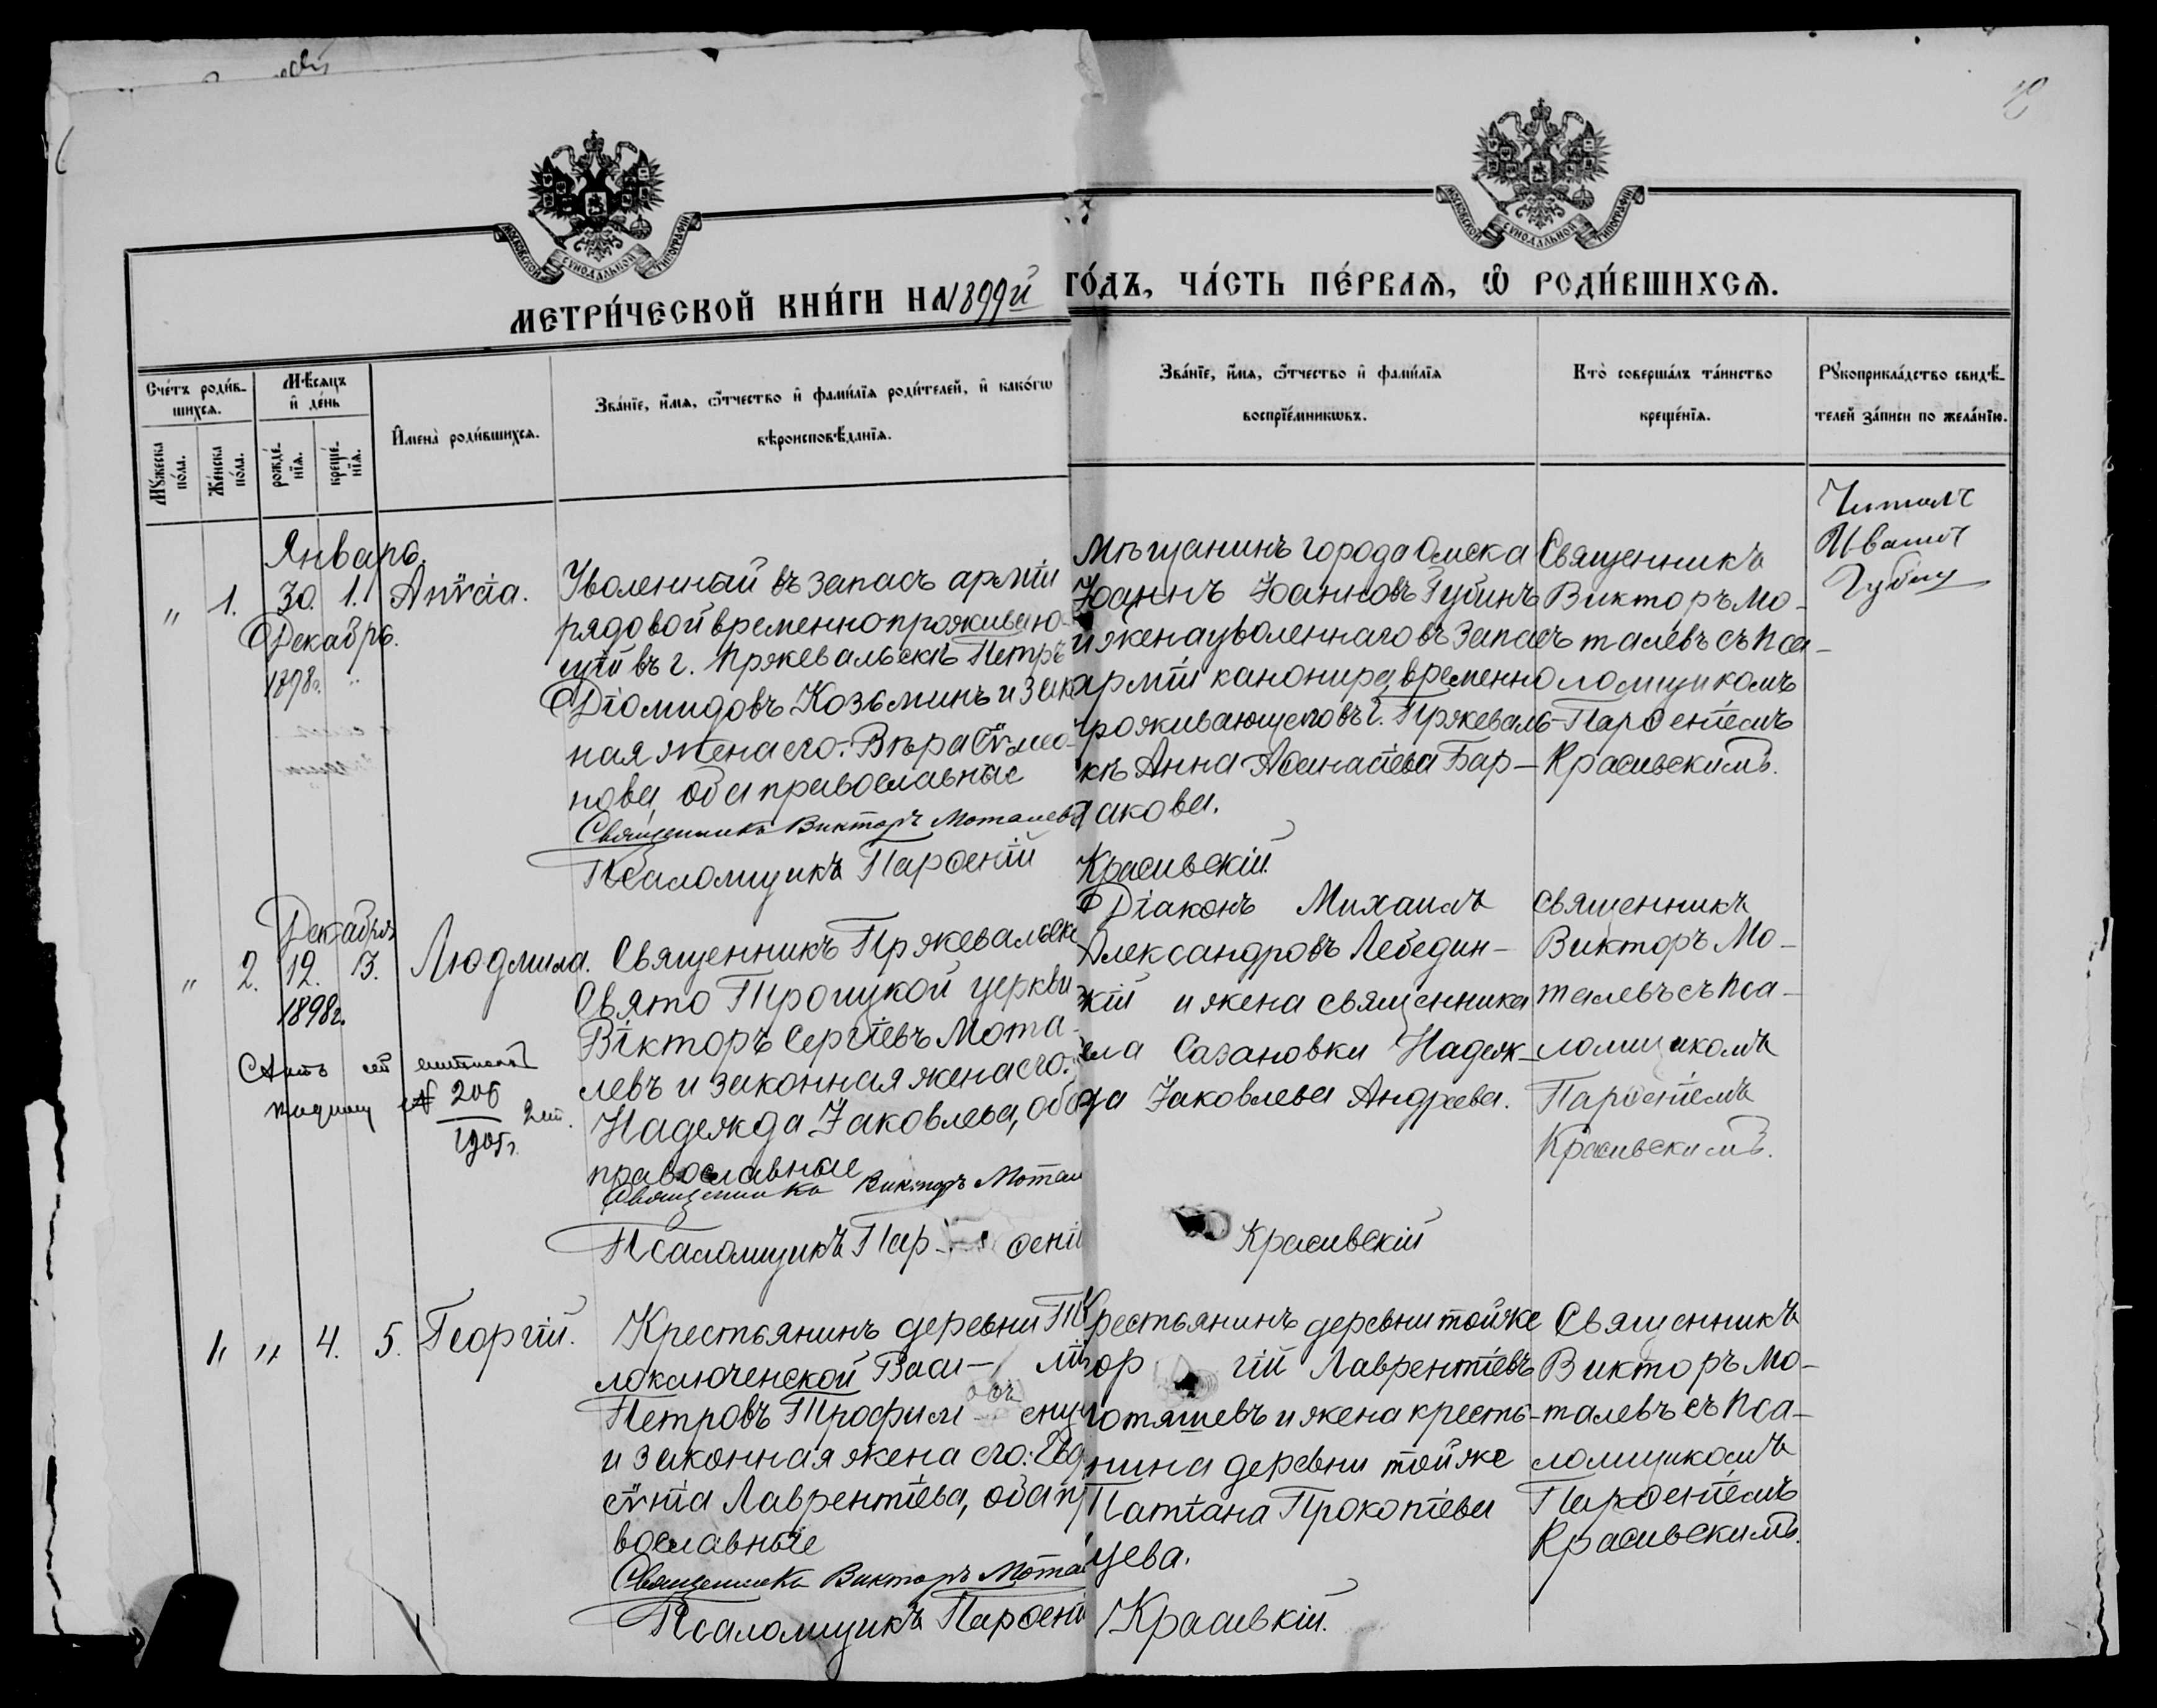 МОСКОВСКОЙ СУНОДАЛЬНОЙ ТИПОГРАФІИ
МОСКОВСКОЙ СУНОДАЛЬНОЙ ТИПОГРАФІИ
МЕТРИ́ЧЕСКОЙ КНИ́ГИ НА 1899й ГО́ДЪ, ЧА́СТЬ ПЕ́РВАѦ, Ѡ РОДИ́ВШИХСѦ.
Сче́тъ роди́в-
шихсѧ.
Мꙋ́жеска по́ла.
Же́нска по́ла.
Мѣ́сѧцъ и де́нь
рожде́-
нїѧ.
креще́-
нїѧ.
Имена̀ роди́вшихсѧ.
Зва́нїе, и́мѧ, ѻ́тчество и фами́лїѧ роди́телей, и како́гѡ
вѣроисповѣ́данїѧ.
Зва́нїе, и́мѧ, ѻ́тчество и фами́лїѧ
воспрїе́мникѡвъ.
Кто̀ соверша́лъ та́инство
креще́нїѧ.
Рꙋкоприкла́дство свидѣ́-
телей за́писи по жела́нїю.
Январь.
" 1. 30. 1. Анѵсіа.
Декабрь.
1898г.
Уволенный въ запасъ арміи
рядовой временно проживаю-
щій въ г. Пржевальскѣ Петръ
Діомидовъ Козьминъ и зак
ная жена его: Вѣра Сѵмео-
нова, оба православные
Священникъ Викторъ Моталевъ
Псаломщикъ Парѳеній
Мѣщанинъ города Омска
Іоаннъ Іоанновъ Губинъ
и жена уволеннаго въ запасъ
арміи канонира, временно
проживающаго въ г. Пржеваль-
скѣ Анна Аѳанасіева Бар-
сакова.
Красивскій.
Священникъ
Викторъ Мо-
талевъ съ пса-
ломщикомъ
Парѳеніемъ
Красивскимъ.
Читалъ
Иванъ
Губинъ
Декабря
" 2. 12. 13. Людмила.
1898г.
206
1905г.
Священникъ Пржевальск
Свято Троицкой церкви
Вікторъ Сергіевъ Мота-
левъ и законная жена его:
Надежда Іаковлева, оба
православные
Священникъ Викторъ Мотал
Псаломщикъ Пар ѳеній
Діаконъ Михаилъ
Александровъ Лебедин-
скій и жена священника
села Сазановки Надеж-
да Іаковлева Андреева.
Красивскій
священникъ
Викторъ Мо-
талевъ съ пса-
ломщикомъ
Парѳеніемъ
Красивскимъ.
1. " 4. 5. Георгій.
Крестьянинъ деревни Те
лоключенской Васи- лій
Петровъ Трофим енц
и законная жена его: Евд
сѵнія Лаврентіева, оба п
вославные
Священникъ Викторъ Мотал
Псаломщикъ Парѳеній
Крестьянинъ деревни тойже
ор гій Лаврентіевъ
отяшевъ и жена кресть-
нина деревни тойже
Татіана Прокопіева
цева.
Красивкій.
Священникъ
Викторъ Мо-
талевъ съ пса-
ломщикомъ
Парѳеніемъ
Красивскимъ.